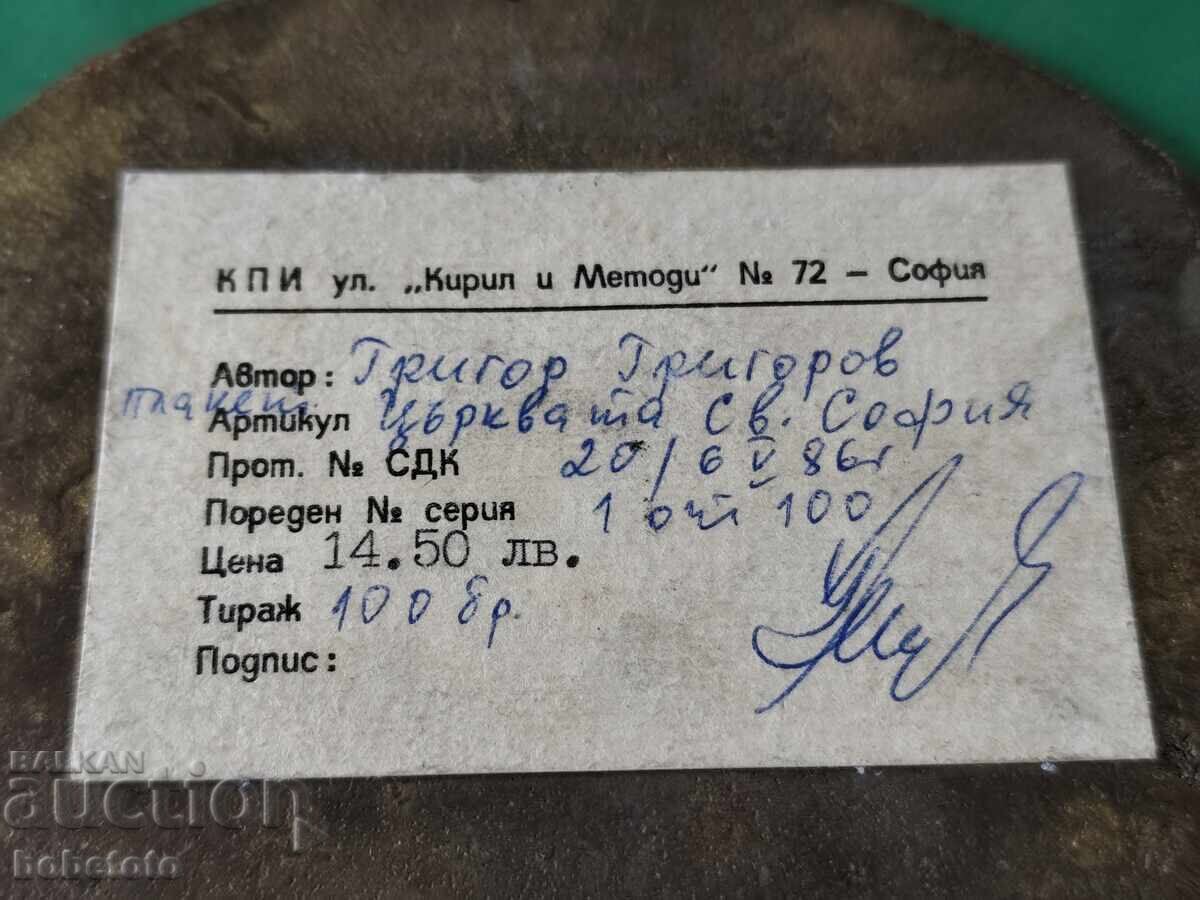 КПИ ул. „Кирил и Методи" № 72 – София
Автор: Григор Григоров
плакет
Артикул Църквата Св. София
Прот. № СДК 20/6 V 86г
Пореден № серия 1 от 100
Цена 14.50 лв.
Тираж 100 бр.
Подпис:
BALKAN
auction
bobetoto